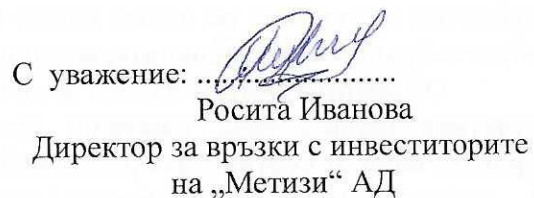 С уважение: ..........................
Росита Иванова
Директор за връзки с инвеститорите
на „Метизи“ АД